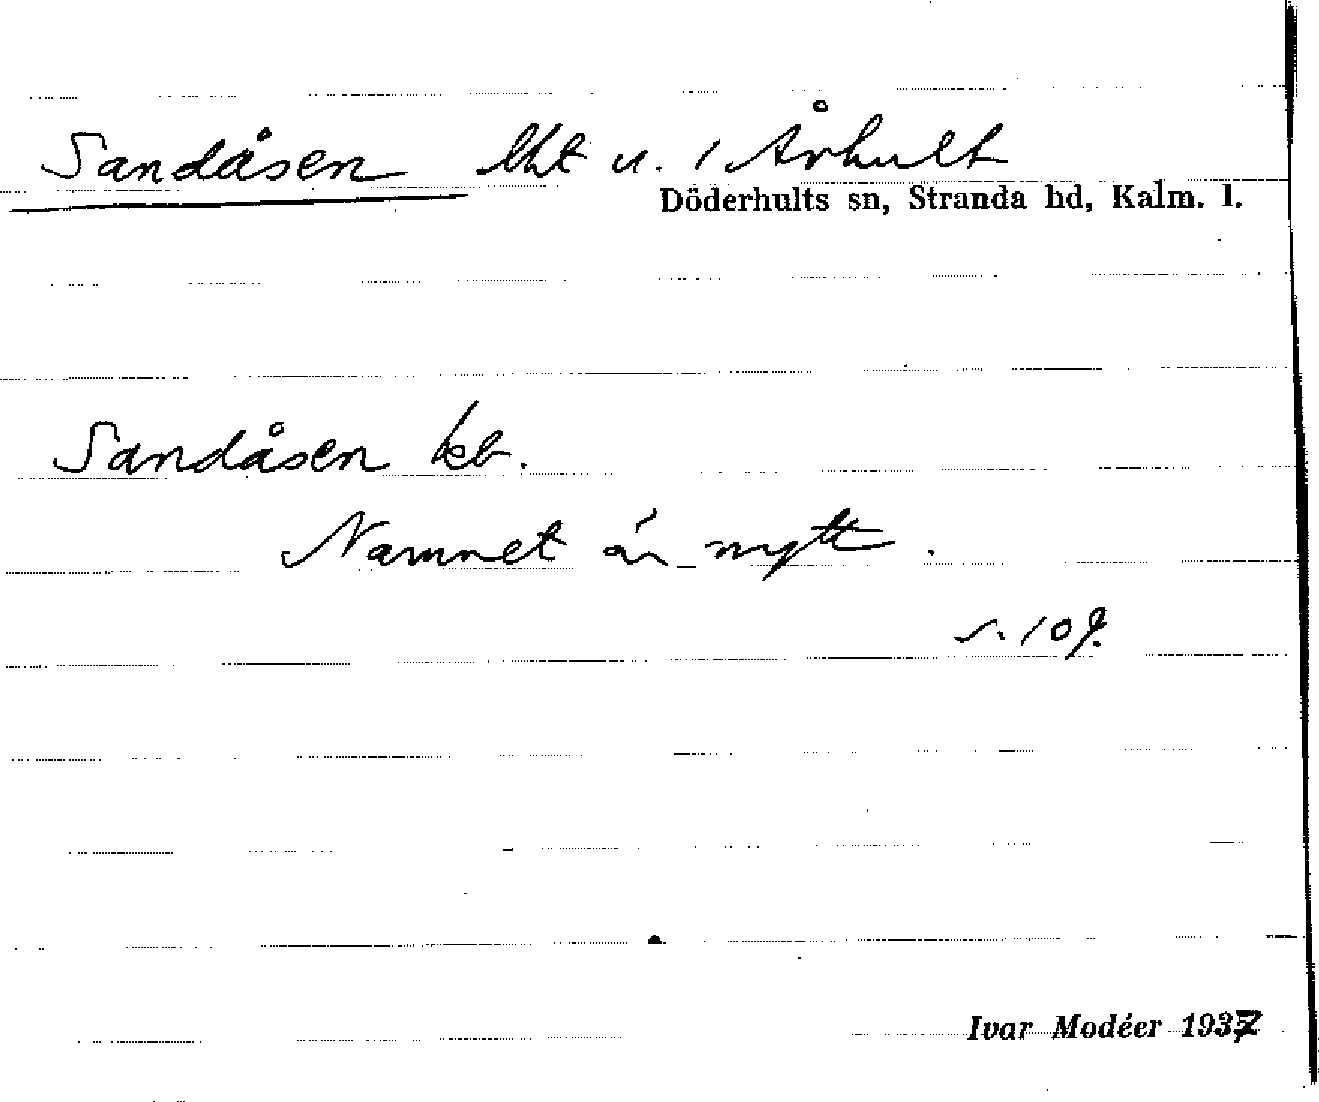 Sandåsen lht u. / Århult
Döderhults sn, Stranda hd, Kalm. l.
Sandåsen kb.
Namnet är nytt.
s. 109.
Ivar Modéer 1937